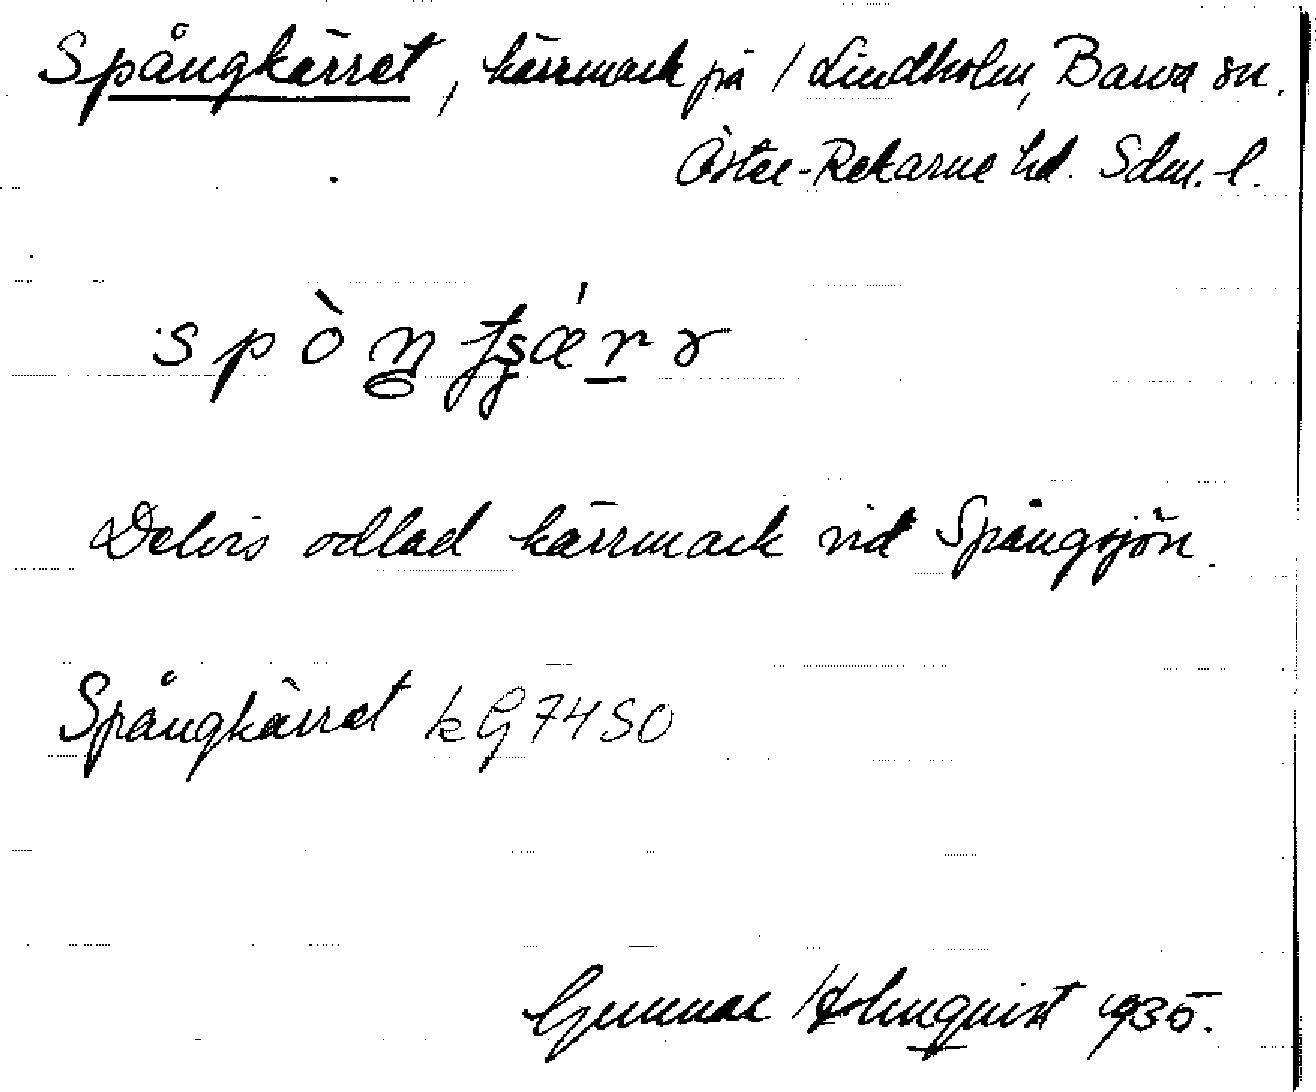 Spångkärret, kärrmark på / Lindholm, Barva sn.
Öster-Rekarne hd. Sdm. l.
Delvis odlad kärrmark vid Spångsjön.
Spångkärret kG7450
Gunnar Holmquist 1935.